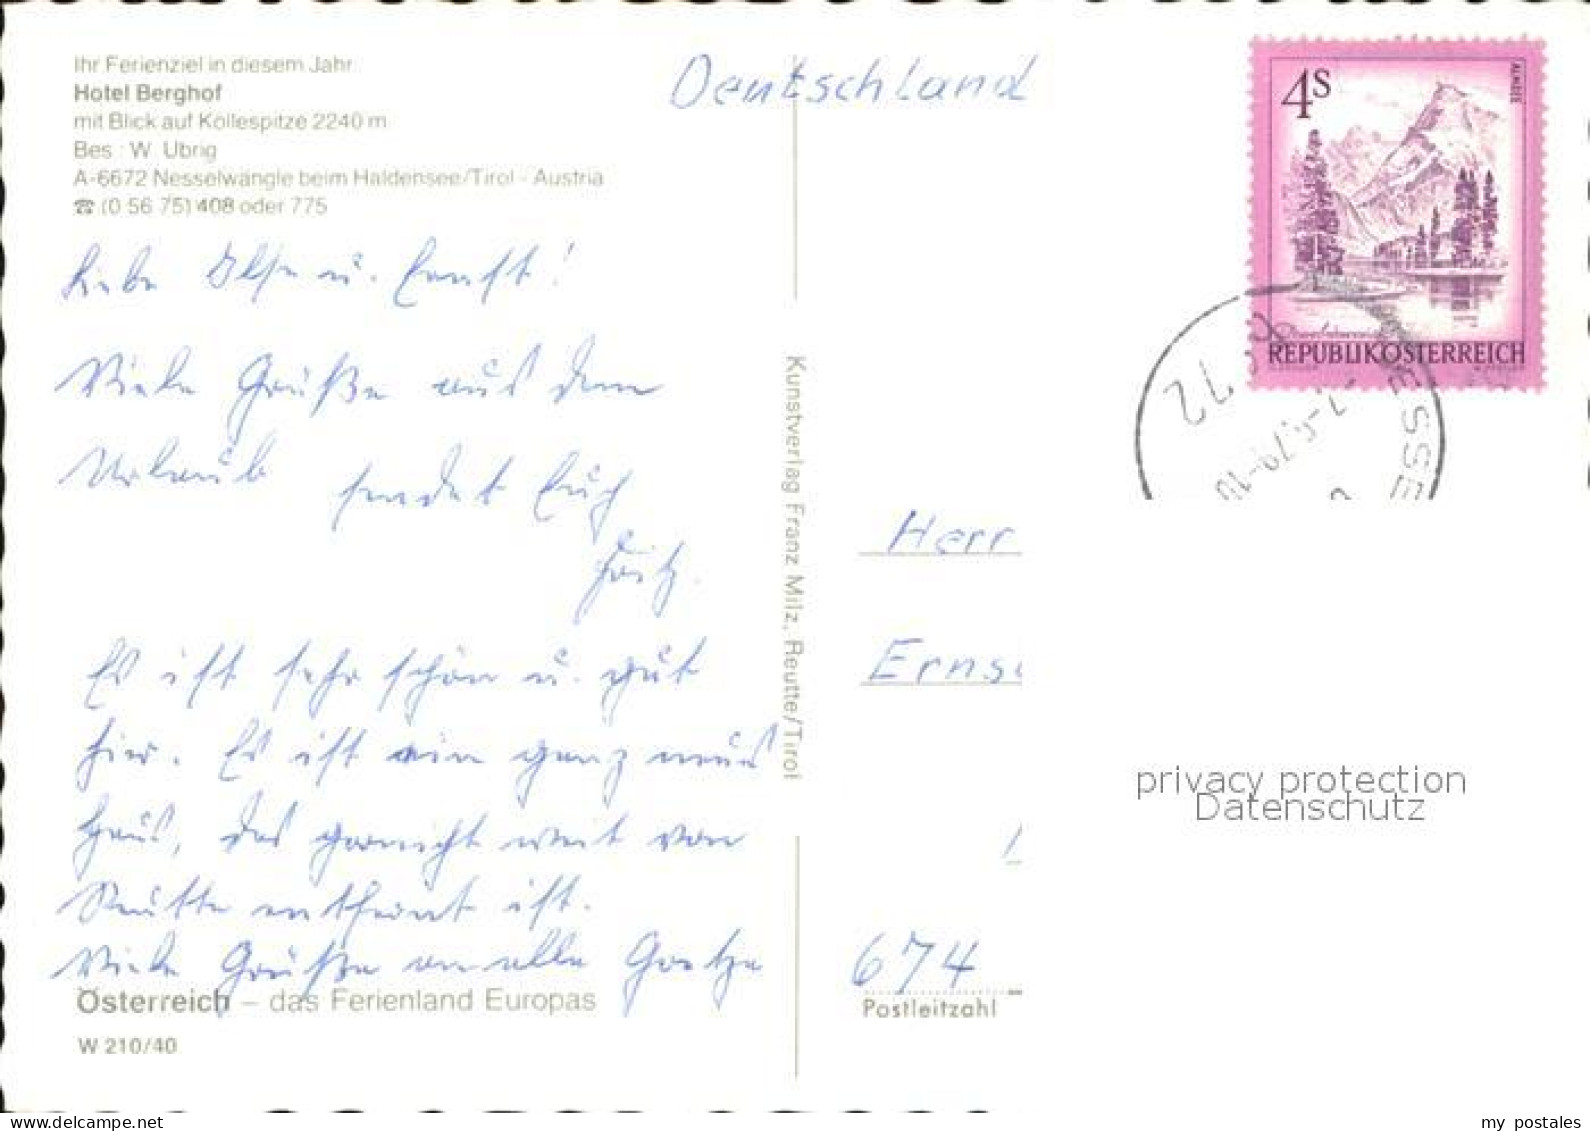 Ihr Ferienziel in diesem Jahr
Hotel Berghof
mit Blick auf Kollespitze 2240 m
Bes : W. Ubrig
A-6672 Nesselwängle beim Haldensee/Tirol - Austria
☎ (0 56 75) 408 oder 775
Deutschland
4S
ALMSEE
REPUBLIK ÖSTERREICH
Liebe Ilse u. Ernst!
Viele Grüße aus dem
Urlaub sendet Euch
Fritz.
Es ist sehr schön u. gut
hier. Es ist ein ganz neues
Haus, das garnicht weit von
Reutte entfernt ist.
Viele Grüße an alle
Österreich – das Ferienland Europas
W 210/40
Kunstverlag Franz Milz, Reutte/Tirol
Herr
674
Postleitzahl
privacy protection
Datenschutz
www.delcampe.net
my_postales